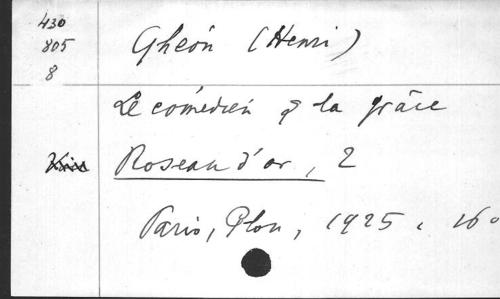 430
805
8
Ghéon (Henri)
Le comédien & la grâce
Roseau d'or, 2
Paris, Plon, 1925. 16°